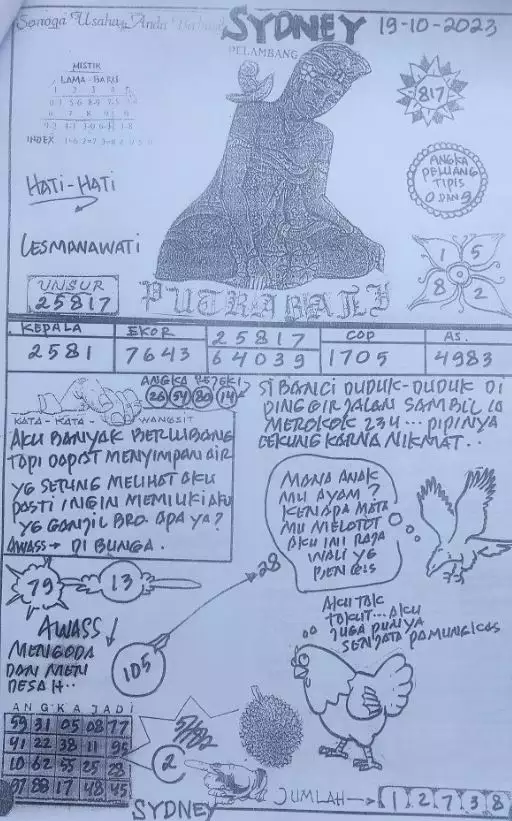 Semoga Usaha Anda Berhasil
SYDNEY 19-10-2023
PELAMBANG
MISTIK
LAMA - BARU
1 2 3 4 5
6 7 8 9
INDEX
817
HATI-HATI
ANGKA
PELUANG
TIPIS
0 DAN 9
LESMANAWATI
1 5
8 2
UNSUR
25817
KEPALA EKOR 25817 COP AS.
2581 7643 64039 1705 4983
ANGKA REJEKI
26 54 80 14
KATA - KATA - WANGSIT
AKU BANYAK BERLUBANG
TAPI DAPAT MENYIMPAN AIR
YG SERING MELIHAT AKU
PASTI INGIN MEMILIKI AKU
YG GANJIL BRO. APA YA?
AWASS → DI BUNGA.
SI BANCI DUDUK-DUDUK DI
PINGGIR JALAN SAMBIL
MEROKOK 234... PIPINYA
CEKUNG KARNA NIKMAT..
MANA ANAK
MU AYAM?
KENAPA MATA
MU MELOTOT
AKU INI RAJA
79 13
28
AKU TAK
TAKUT... AKU
JUGA PUNYA
SENJATA PAMUNGKAS
AWASS!
MENGODA
DAN MEN
DESAH..
105
ANGKA JADI
59 31 05 08 77
41 22 38 11 95
10 62 55 25 28
07 88 17 48 45
2
SYDNEY
JUMLAH → 12738